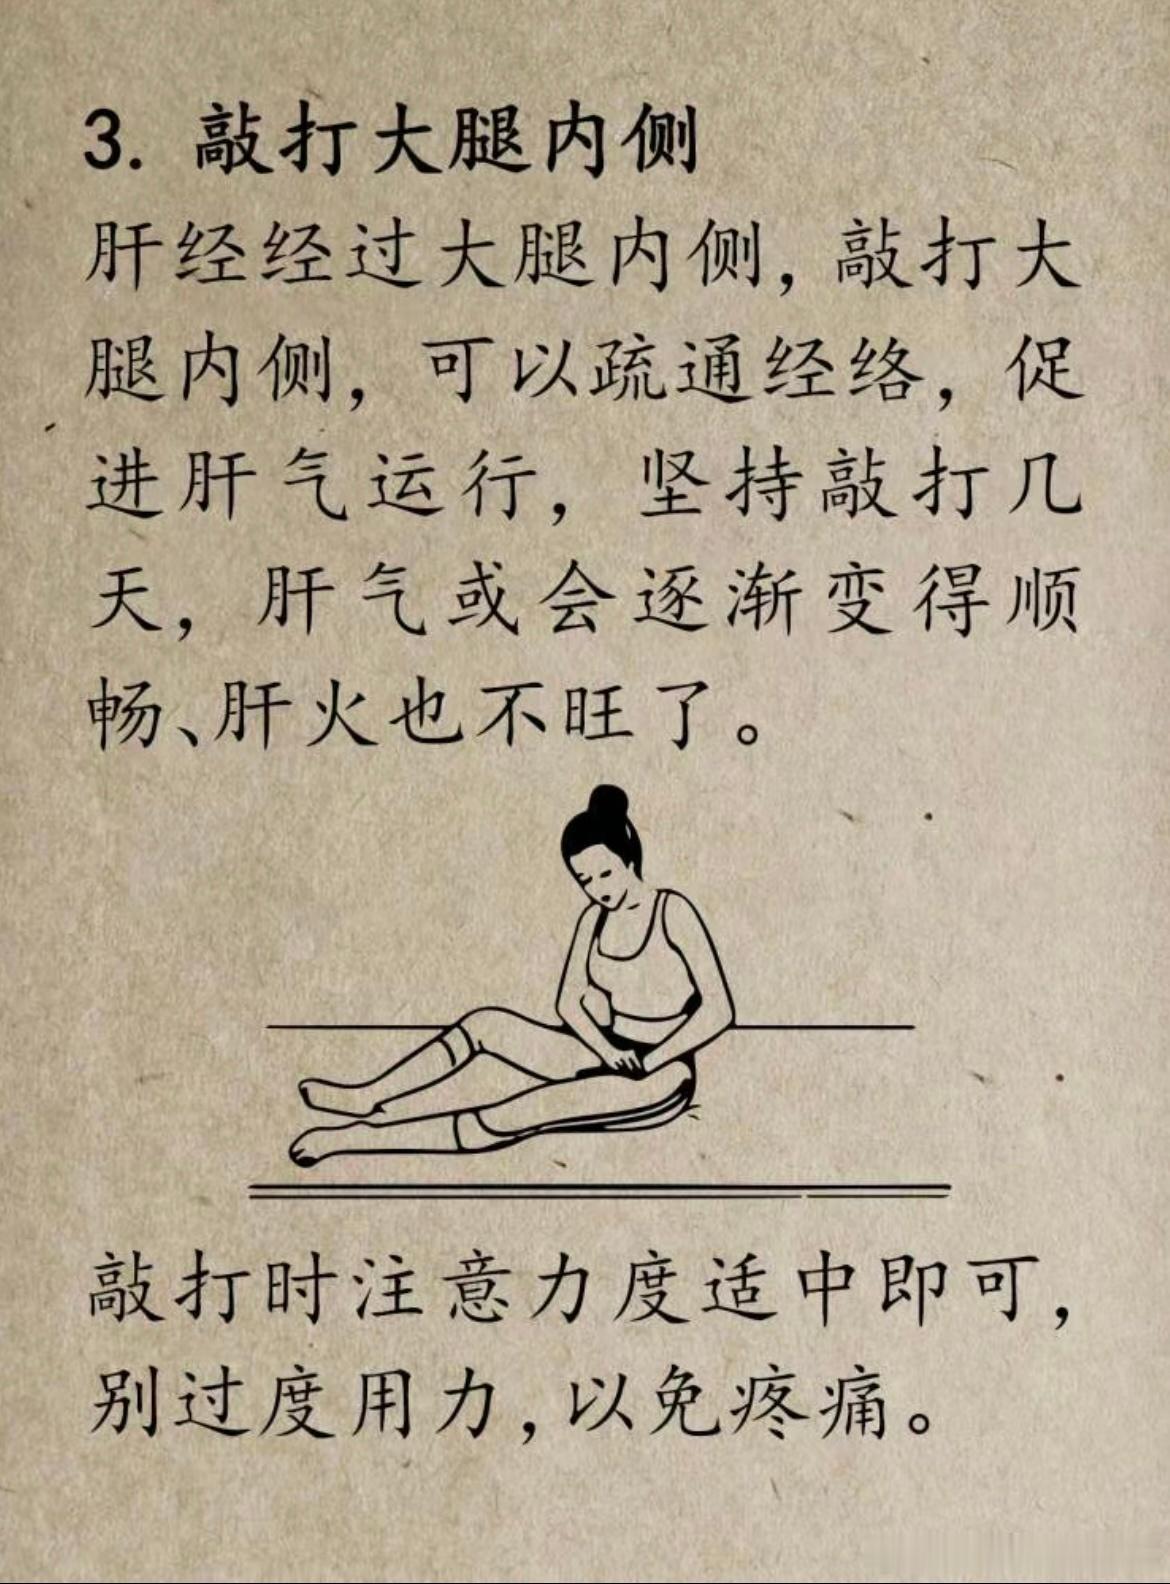 3. 敲打大腿内侧
肝经经过大腿内侧，敲打大
腿内侧，可以疏通经络，促
进肝气运行，坚持敲打几
天，肝气或会逐渐变得顺
畅、肝火也不旺了。
敲打时注意力度适中即可，
别过度用力，以免疼痛。